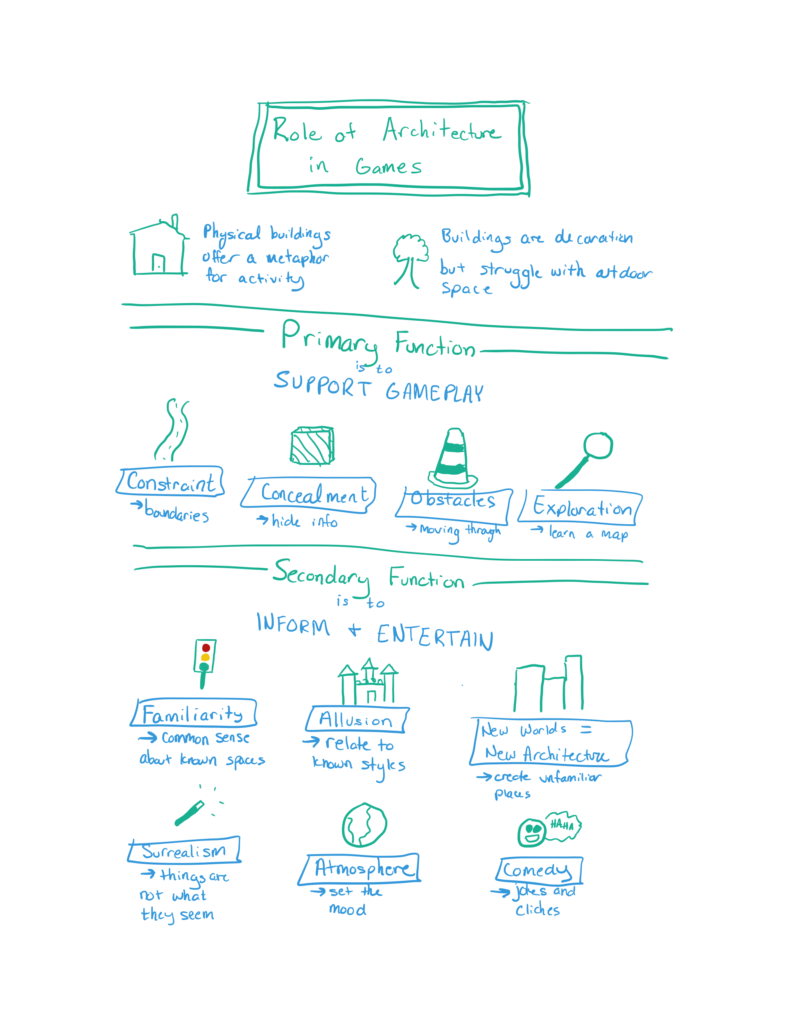 Role of Architecture
in Games
Physical buildings
offer a metaphor
for activity
Buildings are decoration
but struggle with outdoor
space
Primary Function
is to
SUPPORT GAMEPLAY
Constraint
→ boundaries
Concealment
→ hide info
Obstacles
→ Moving through
Exploration
→ learn a map
Secondary Function
is to
INFORM + ENTERTAIN
Familiarity
→ Common sense
about known spaces
Allusion
→ relate to
known styles
New Worlds =
New Architecture
→ create unfamiliar
places
Surrealism
→ things are
not what
they seem
Atmosphere
→ set the
mood
HAHA
Comedy
→ jokes and
cliches